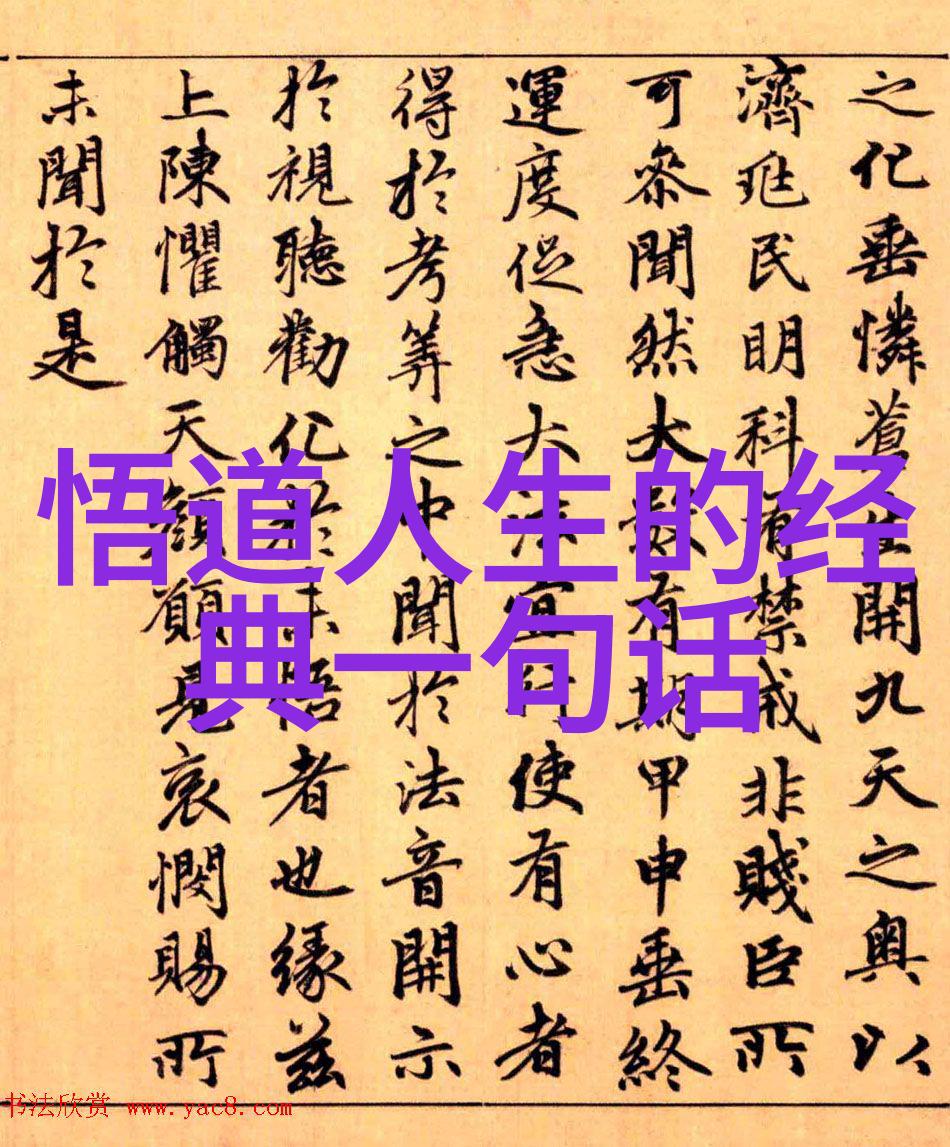 之化垂憐蒼生開九天之奥以
濟兆民明科有禁戒非賤臣所
可參聞然大數有期甲申垂終
運度促急大法宜行使有心者
得於考筭之中聞於法音開示
於視聽勸化於未悟者也緣茲
上陳懼觸天顏願見哀憫賜所
未聞於是
悟道人生的经
典一句话
书法欣赏 www.yac8.com